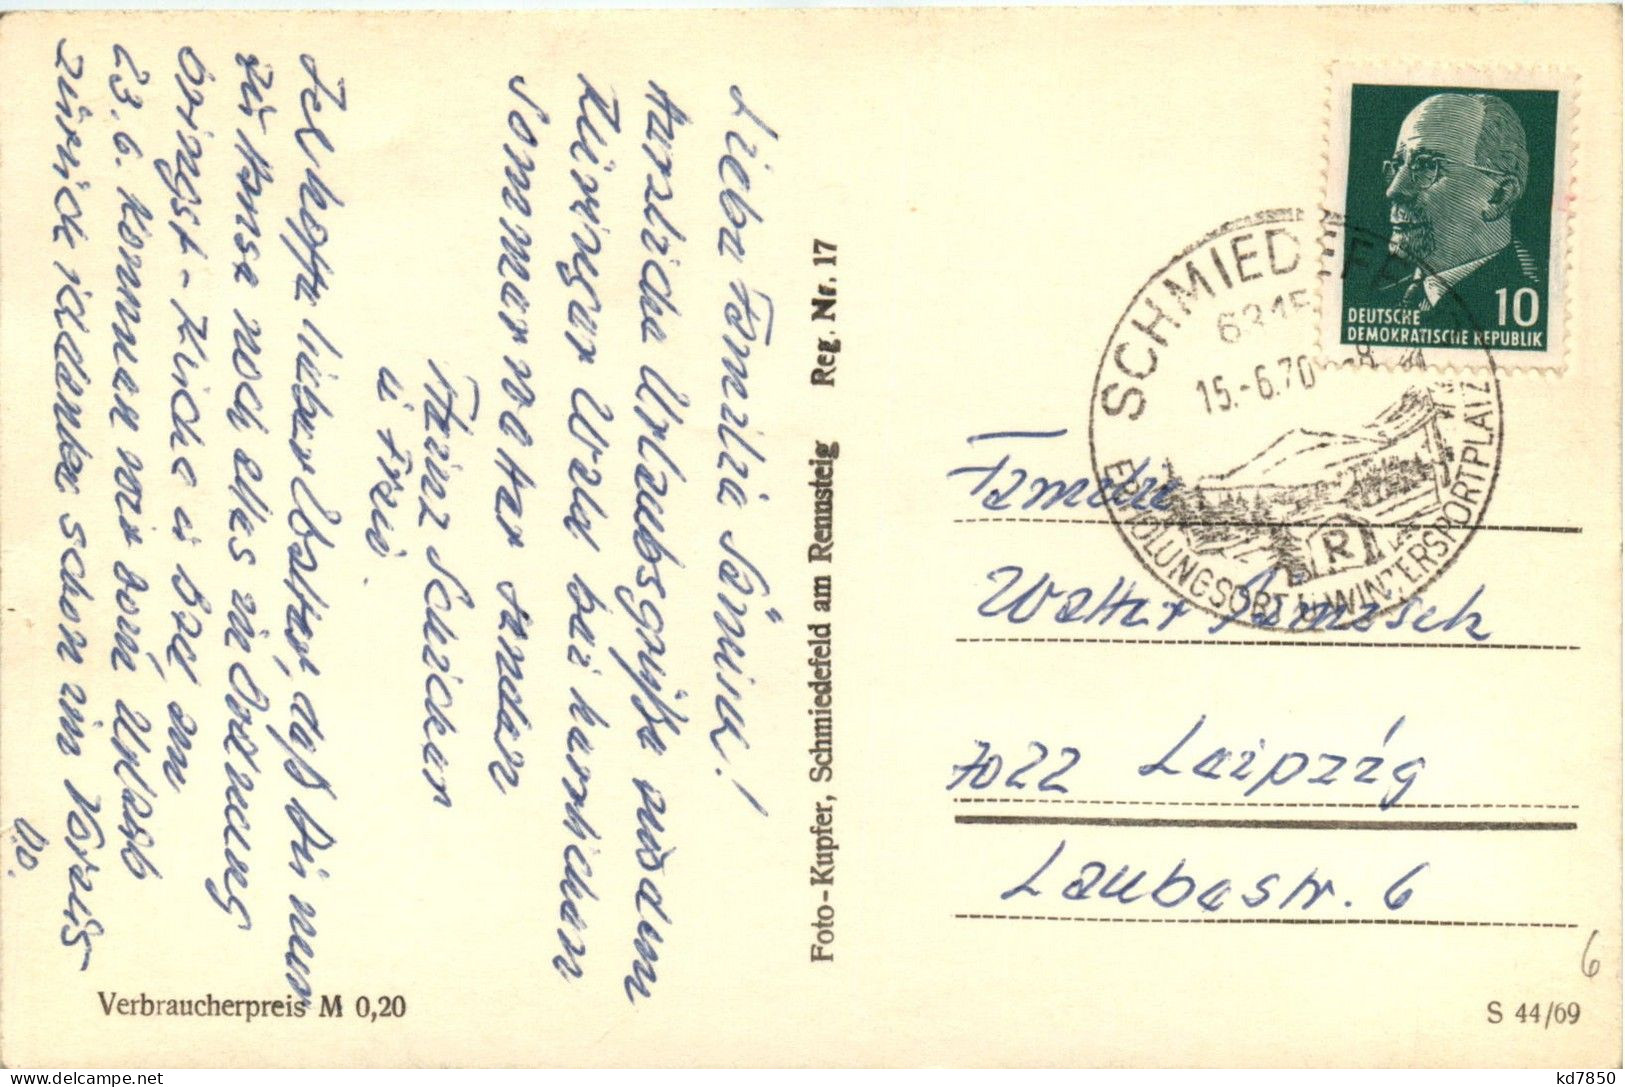 Liebe Familie Jänisch!
Herzliche Urlaubsgrüße aus dem
Thüringer Wald bei herrlichem
Sommerwetter senden
Heinz Schicker
u Frau.
Ich hoffe lieber daß Du nun
zu Hause noch alles in Ordnung
bringst - Küche u am
23.6. kommen wir vom Urlaub
zurück ich danke schon im Voraus
D.O.
Foto-Kupfer, Schmiedefeld am Rennsteig Reg. Nr. 17
Verbraucherpreis M 0,20
DEUTSCHE
DEMOKRATISCHE REPUBLIK
10
SCHMIEDEFELD
6315
15.-6.70
R
ERHOLUNGSORT U. WINTERSPORTPLATZ
Familie
Walter Jänisch
7022 Leipzig
Laubestr. 6
6
S 44/69
kd7850